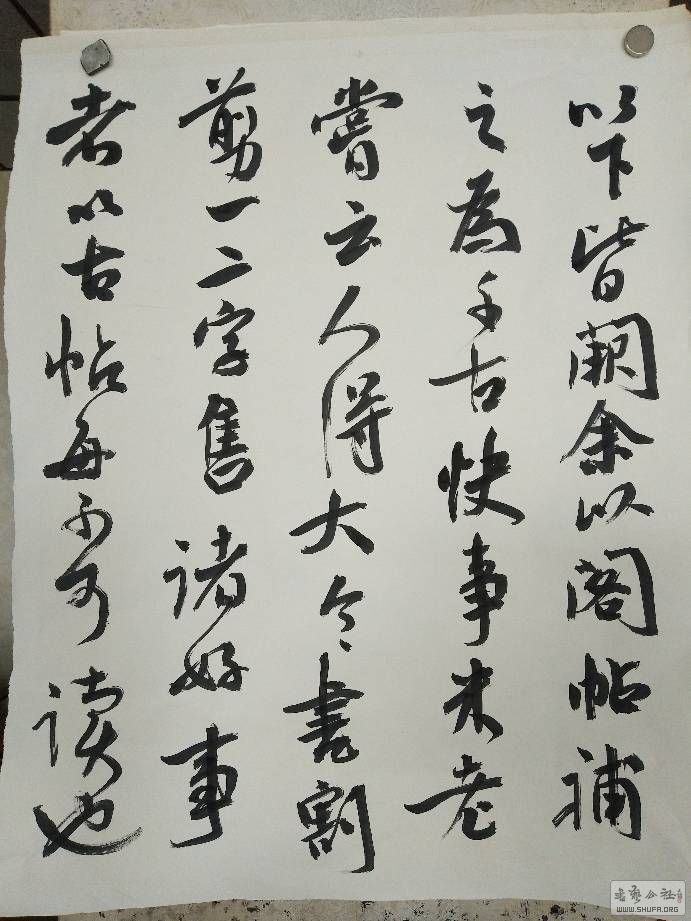 以下皆阙余以阁帖補
之為千古快事米老
嘗云人得大令書割
剪一二字售诸好事
者以古帖每不可读也
书艺公社
WWW.SHUFA.ORG